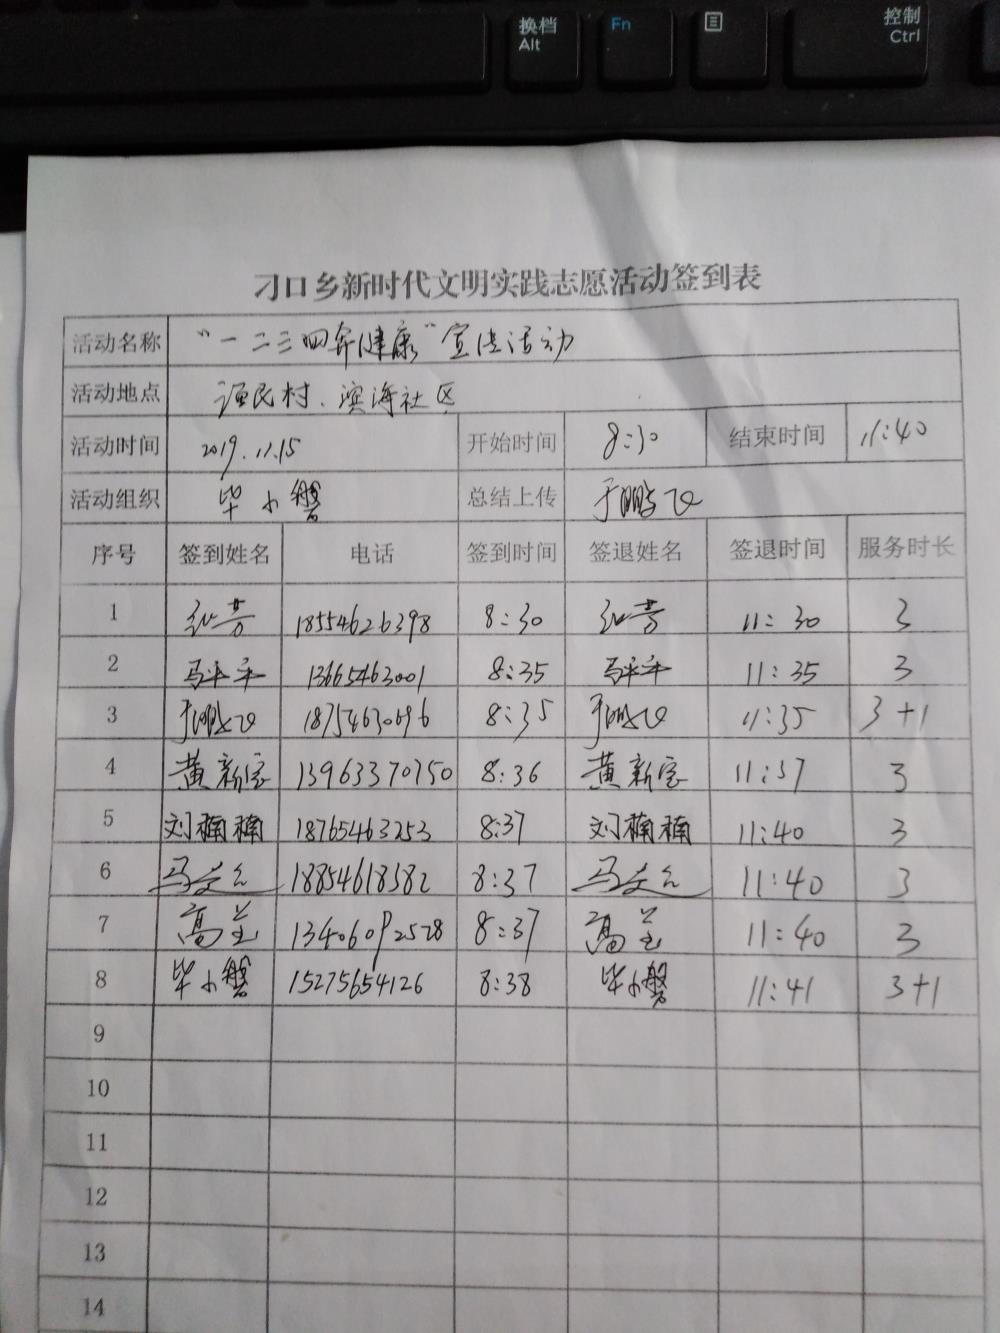 换档
Alt
Fn
控制
Ctrl
刁口乡新时代文明实践志愿活动签到表
活动名称 "一二三四奔健康"宣传活动
活动地点 渔民村、滨海社区
活动时间 2019.11.15 开始时间 8:30 结束时间 11:40
活动组织 毕小磐 总结上传 于鹏飞
序号 签到姓名 电话 签到时间 签退姓名 签退时间 服务时长
1 18554626398 8:30 11:30 3
2 马平平 13665463001 8:35 马平平 11:35 3
3 于鹏飞 18754630696 8:35 于鹏飞 11:35 3+1
4 黄新宝 13963370750 8:36 黄新宝 11:37 3
5 刘楠楠 18765463253 8:37 刘楠楠 11:40 3
6 18854618582 8:37 11:40 3
7 高 13406092528 8:37 高 11:40 3
8 毕小磐 15275654126 8:38 毕小磐 11:41 3+1
9
10
11
12
13
14